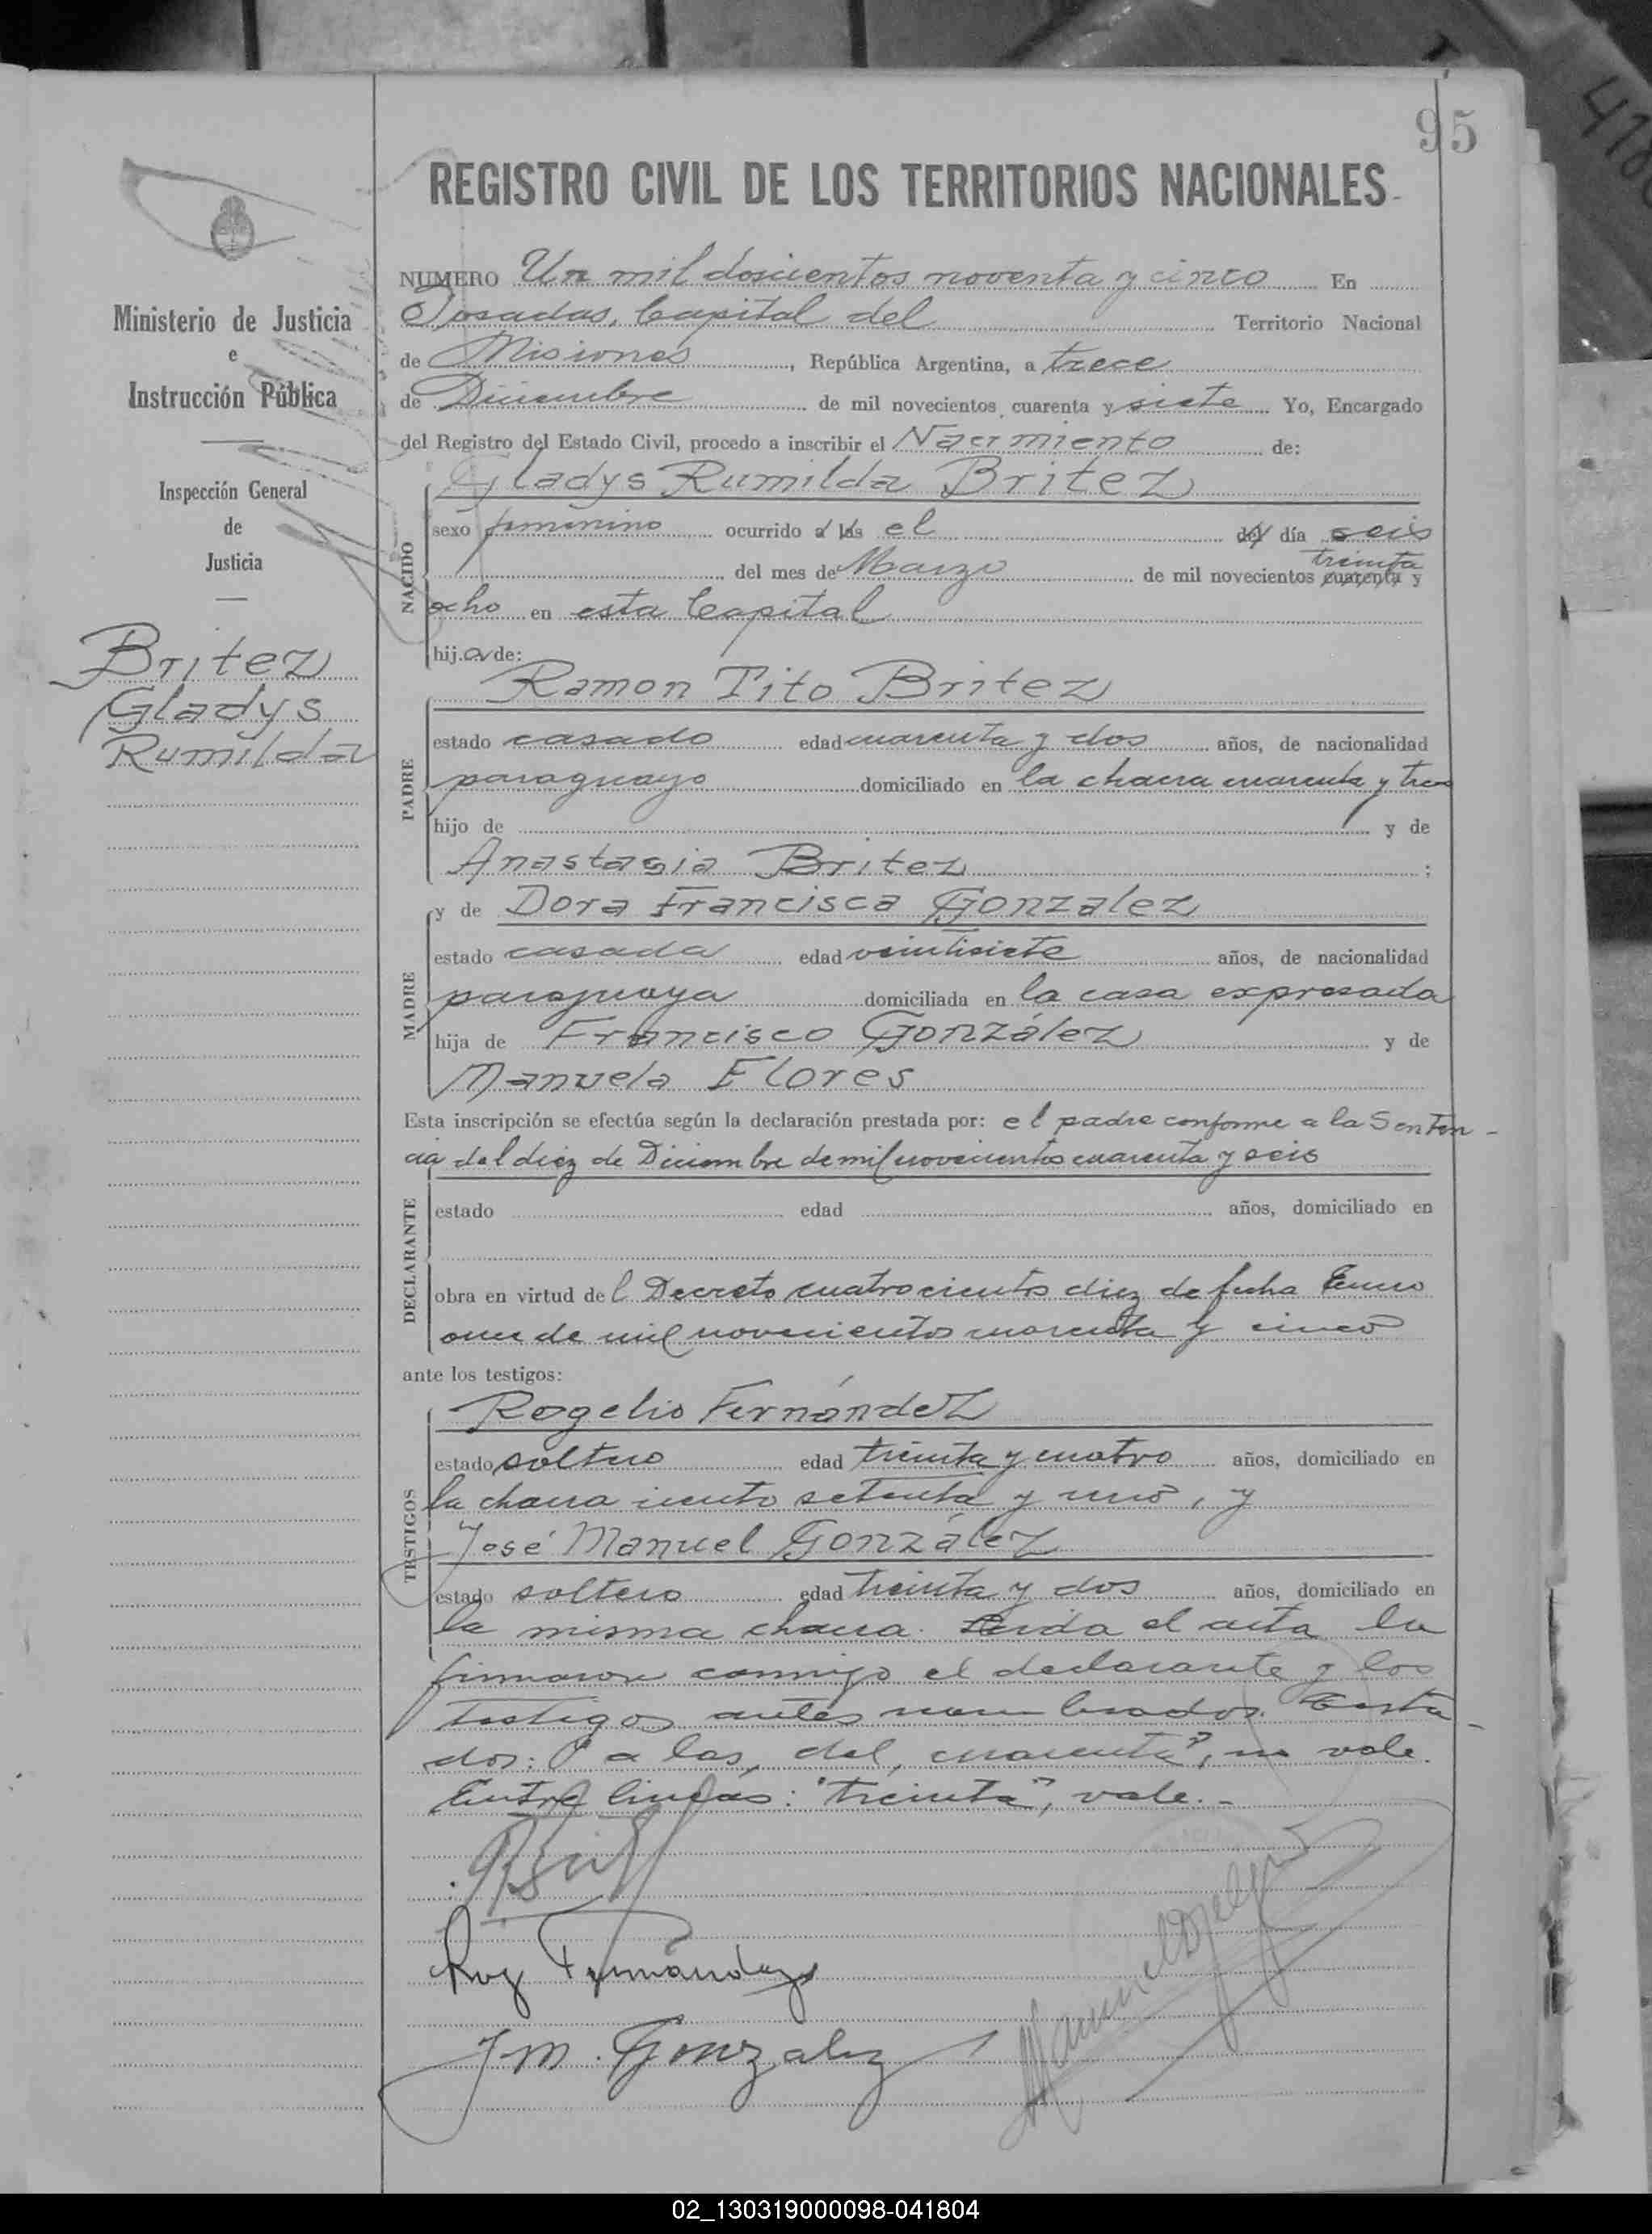 95
REGISTRO CIVIL DE LOS TERRITORIOS NACIONALES
Ministerio de Justicia
e
Instrucción Pública
Inspección General
de
Justicia
Britez
Gladys
Rumilda
NUMERO Un mil doscientos noventa y cinco En
Posadas, Capital del Territorio Nacional
de Misiones, República Argentina, a trece
de Diciembre de mil novecientos cuarenta y siete Yo, Encargado
del Registro del Estado Civil, procedo a inscribir el Nacimiento de:
Gladys Rumilda Britez
NACIDO
sexo femenino ocurrido a las el del día seis
treinta
del mes de Marzo de mil novecientos cuarenta y
ocho en esta Capital
hija de:
Ramon Tito Britez
PADRE
estado casado edad cuarenta y dos años, de nacionalidad
paraguayo domiciliado en la chacra cuarenta y tres
hijo de y de
Anastasia Britez ;
y de Dora Francisca Gonzalez
MADRE
estado casada edad veintisiete años, de nacionalidad
paraguaya domiciliada en la casa expresada
hija de Francisco González y de
Manuela Flores
Esta inscripción se efectúa según la declaración prestada por: el padre conforme a la Senten-
cia del diez de Diciembre de mil novecientos cuarenta y seis
DECLARANTE
estado edad años, domiciliado en
obra en virtud del Decreto cuatrocientos diez de fecha Enero
once de mil novecientos cuarenta y cinco
ante los testigos:
Rogelio Fernández
TESTIGOS
estado soltero edad treinta y cuatro años, domiciliado en
la chacra ciento setenta y uno, y
José Manuel González
estado soltero edad treinta y dos años, domiciliado en
la misma chacra. Leida el acta la
firmaron conmigo el declarante y los
testigos antes nombrados. Testa-
dos: "a las, del, cuarenta", no vale.
Entre lineas: "treinta", vale.-
Rog Fernández
J M. Gonzalez
02_130319000098-041804